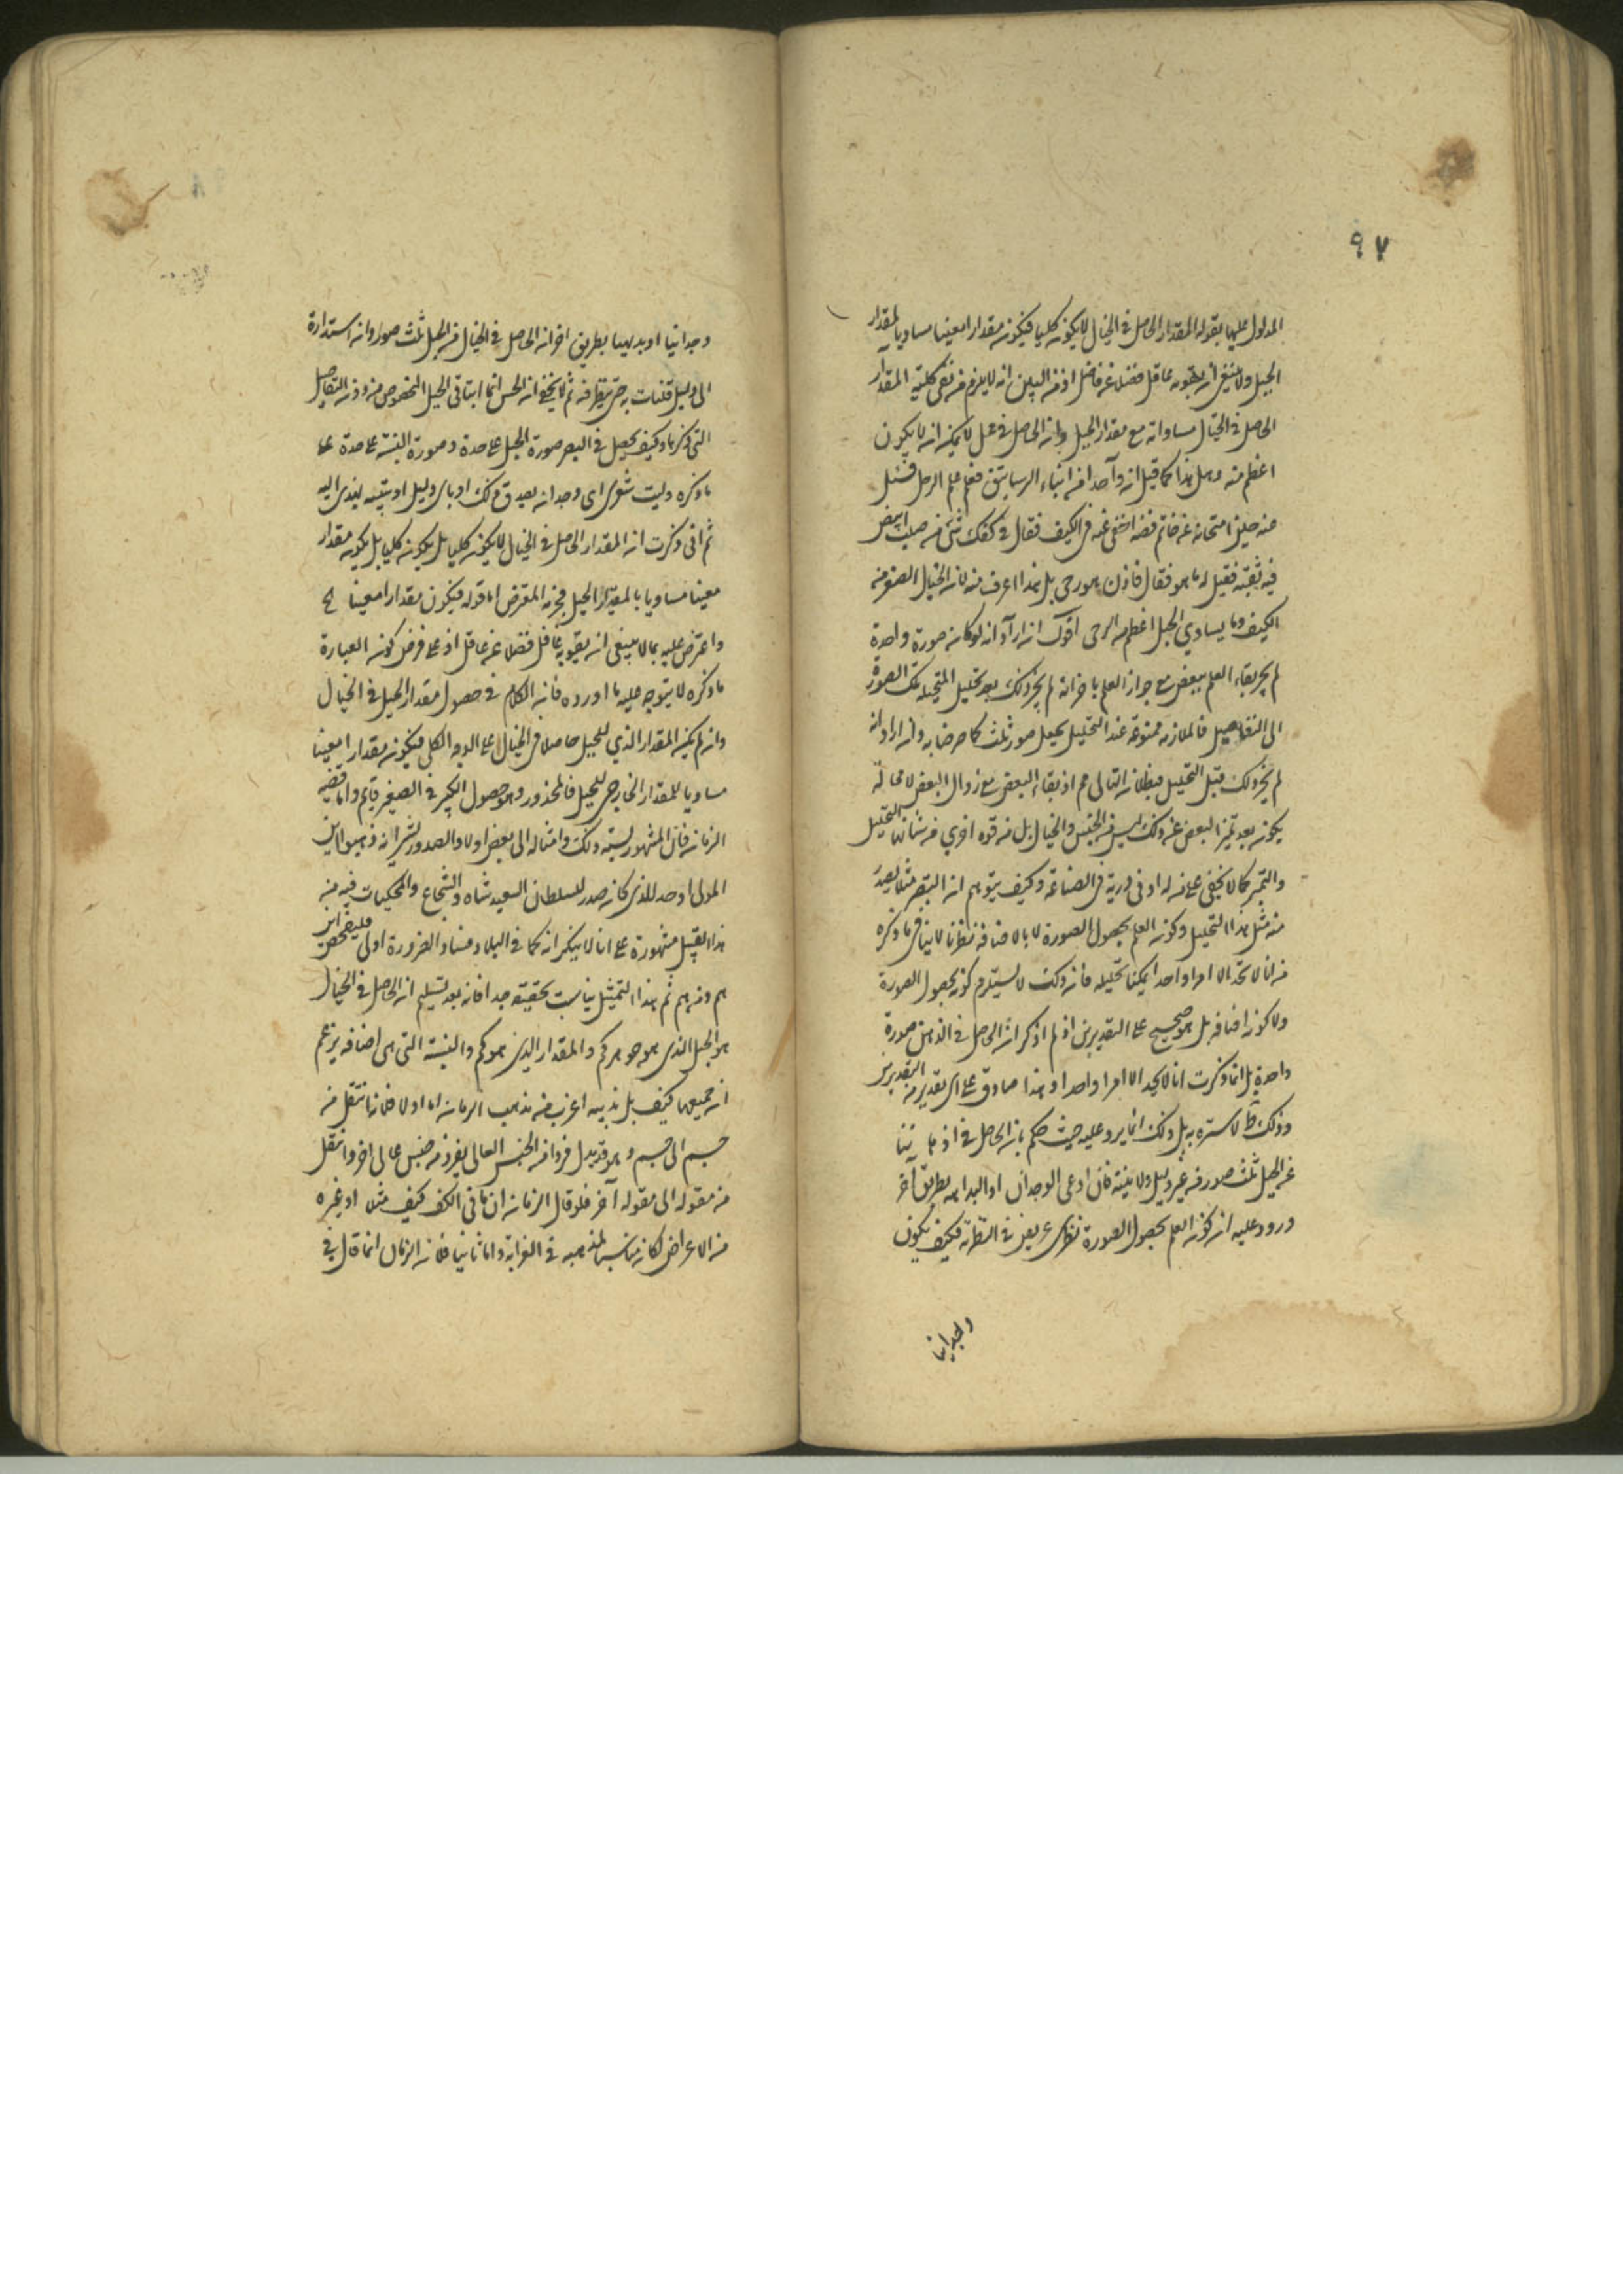 ٩٧
المدلول عليها بقوله المقدار الحاصل فى الخيال لا يكون كليا فيكون مقدارا معينا مساويا لمقدار
الجبل ولا ينبغى ان يتفوه به عاقل فضلا عن فاضل اذ من البين انه لا يلزم من نفى كلية المقدار
الحاصل فى الخيال مساواته مع مقدار الجبل وان الحاصل فى لا يمكنه ان لا يكون
اعظم منه وهل هذا كما قيل ان واحدا من ابناء الرساتيق علم الرمل فسئل
منه حين امتحانه عن خاتم فضة اخفى عنه فى الكف فقال فى كفك شئ صلب ابيض
فيه ثقبة فقيل له ما هو فقال فاذن هو رحى بل هذا اغرب منه لان الخيال اصغر من
الكف وما يساوي الجبل اعظم من الرحى اقول ان اراد انه لو كان صورة واحدة
لم يجز بقاء العلم ببعض مع جواز العلم باخر انه لم يجز ذلك بعد تحليل المتخيلة تلك الصورة
الى التفاصيل فالملازمة ممنوعة عند التحليل يحصل صور ثلث كما صرحنا به وان اراد انه
لم يجز ذلك قبل التحليل فبطلان التالى مم اذ بقاء البعض مع زوال البعض لا محالة
يكون بعد تميز البعض عنه وذلك ليس من الحس والخيال بل من قوة اخرى من شانها التحليل
والتميز كما لا يخفى على من له ادنى دربة فى الصناعة وكيف يتوهم ان البصر مثلا يصدر
منه مثل هذا التحليل وكون العلم بحصول الصورة لا بالاضافة نظريا لا ينافى ما ذكره
من انا لا نجد الا امرا واحدا يمكننا تحليله فان ذلك لا يستلزم كونه بحصول الصورة
ولا كونه اضافة بل هو صحيح على التقديرين اذ لم اذكر ان الحاصل فى الذهن صورة
واحدة بل انما ذكرت انا لا نجد الا امرا واحدا وهذا صادق على اى تقدير من التقديرين
وذلك لا سترة به بل ذلك انما يرد عليه حيث حكم بان الحاصل فى اذهاننا
عن الجبل ثلث صور من غير دليل ولا بينة فان ادعى الوجدان او البداهة بطريق آخر
ورد عليه ان كون العلم بحصول الصورة نظرى عريض فى النظرية فكيف يكون
وجدانيا
وجدانيا او بديهيا بطريق اخر ان الحاصل فى الخيال من الجبل ثلث صور وان استداره
الى دليل فليات به حتى ينظر فيه ثم لا يخفى ان الحس انما ابتاتى الجبل المخصوص من دون التفاصيل
التى ذكرها وكيف يحصل فى البصر صورة الجبل على حدة وصورة النسبة على حدة على
ما ذكره وليت شعرى اى وجدان يصدق ذلك او باى دليل او تنبيه يهتدى اليه
ثم انى ذكرت ان المقدار الحاصل فى الخيال لا يكون كليا بل يكون كليا بل يكون مقدار
معينا مساويا بالمقدار الجبل المعترض اما قوله فيكون مقدارا معينا الخ
واعترض عليه بما لا ينبغى ان يتفوه به غافل فضلا عن عاقل اذ على فرض كون العبارة
ما ذكره لا يتوجه عليه ما اورده فان الكلام فى حصول مقدار الجبل فى الخيال
وان لم يكن المقدار الذي للجبل حاصلا فى الخيال على الوجه الكلى فيكون مقدارا معينا
مساويا للمقدار الخارجى للجبل فالمحذور وهو حصول الكبير فى الصغير قايم واما قضية
الرمان فان المشهور نسبة ذلك وامثاله الى بعض اولاد الصدور
المولى اوحد الذى كان صدر السلطان السعيد شاه الشجاع والمحكيات فيه من
هذا القبيل مشهورة على انا لا ننكر انه كما فى البلاد فساد الضرورة اولى فليفحص
هم ومن هم ثم هذا التمثيل يناسب تحقيقه جدا فانه بعد تسليم ان الحاصل فى الخيال
هو الجبل الذى هو جوهر كم والمقدار الذى هو كم والنسبة التى هى اضافة يزعم
ان جميعها كيف بل مذهبه اغرب من مذهب الرمان اما اولا فلان انتقل من
جسم الى جسم وهو قد يبدل فردا من الجنس العالى بفرد من جنس عالى اخر وانتقل
من مقولة الى مقولة آخر فلو قال الرمان ان ما فى الكف كيف مثلا او غيره
من الاعراض لكان مناسبا لمذهبه فى الغرابة واما ثانيا فلان الرمال انما قال فى